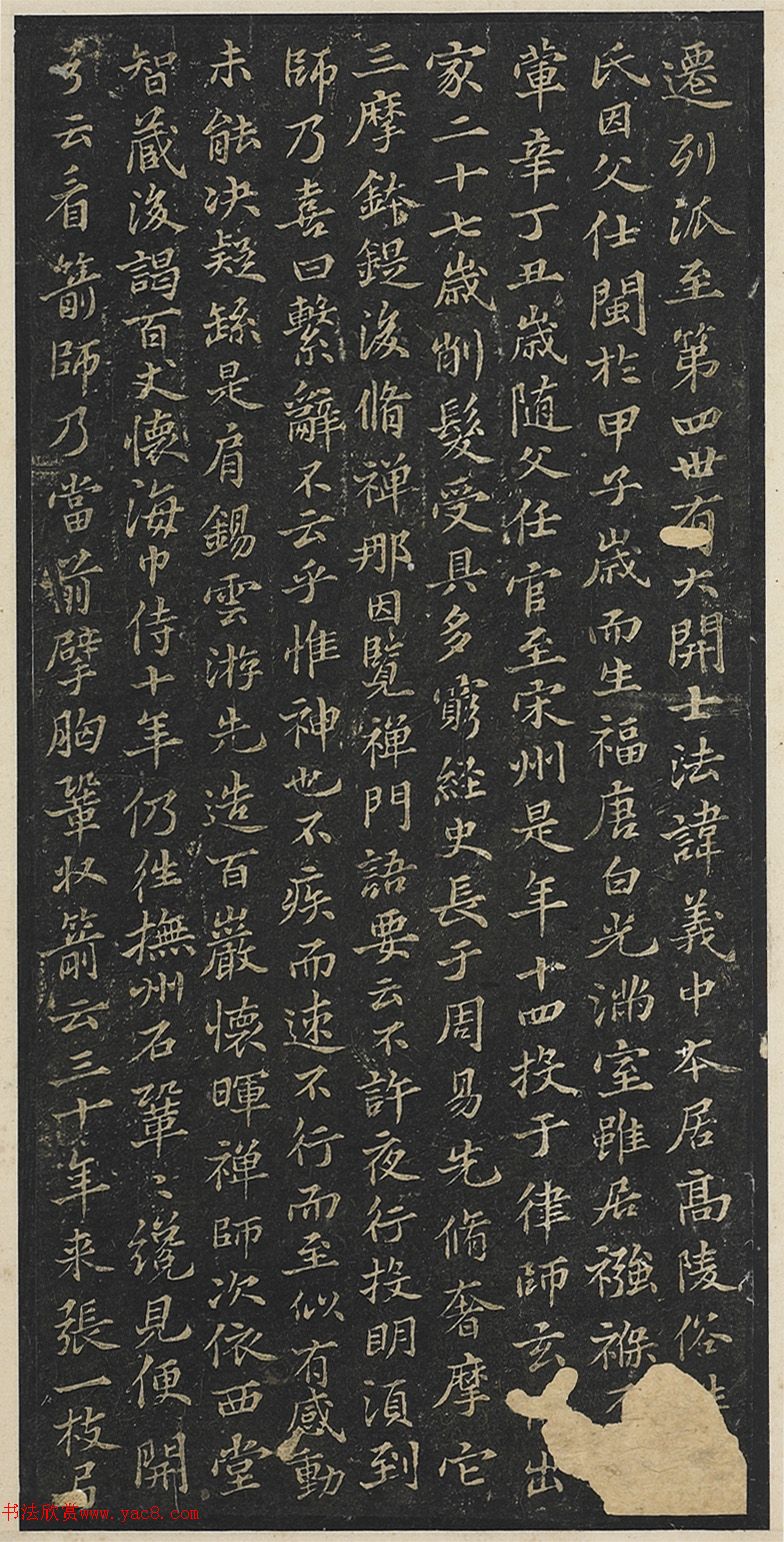 遷列派至第四世有大開士法諱義中本居高陵俗
氏因父仕閩於甲子歲而生福唐白光滿室雖居襁褓不
葷辛丁丑歲随父任官至宋州是年十四投于律師玄出
家二十七歲削髮受具多窮經史長于周易先脩奢摩它
三摩鉢鍉後脩禅那因覽禅門語要云不許夜行投明須到
師乃喜曰繫辭不云乎惟神也不疾而速不行而至似有感動
未能决疑繇是肩錫雲游先造百巖懷暉禅師次依西堂
智藏後謁百丈懷海巾侍十年仍往撫州石鞏〻纔見便開
弓云看箭師乃當前擘胸鞏收箭云三十年来張一枝弓
书法欣赏www.yac8.com